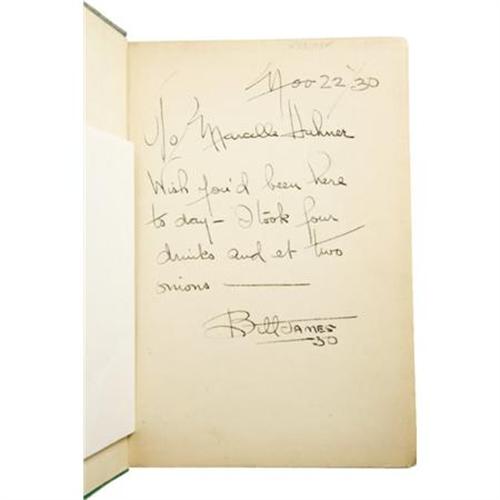 Nov 22 30
To Marcelle Huhner
Wish you'd been here
to day - I took four
drinks and et two
onions
Bill James
30